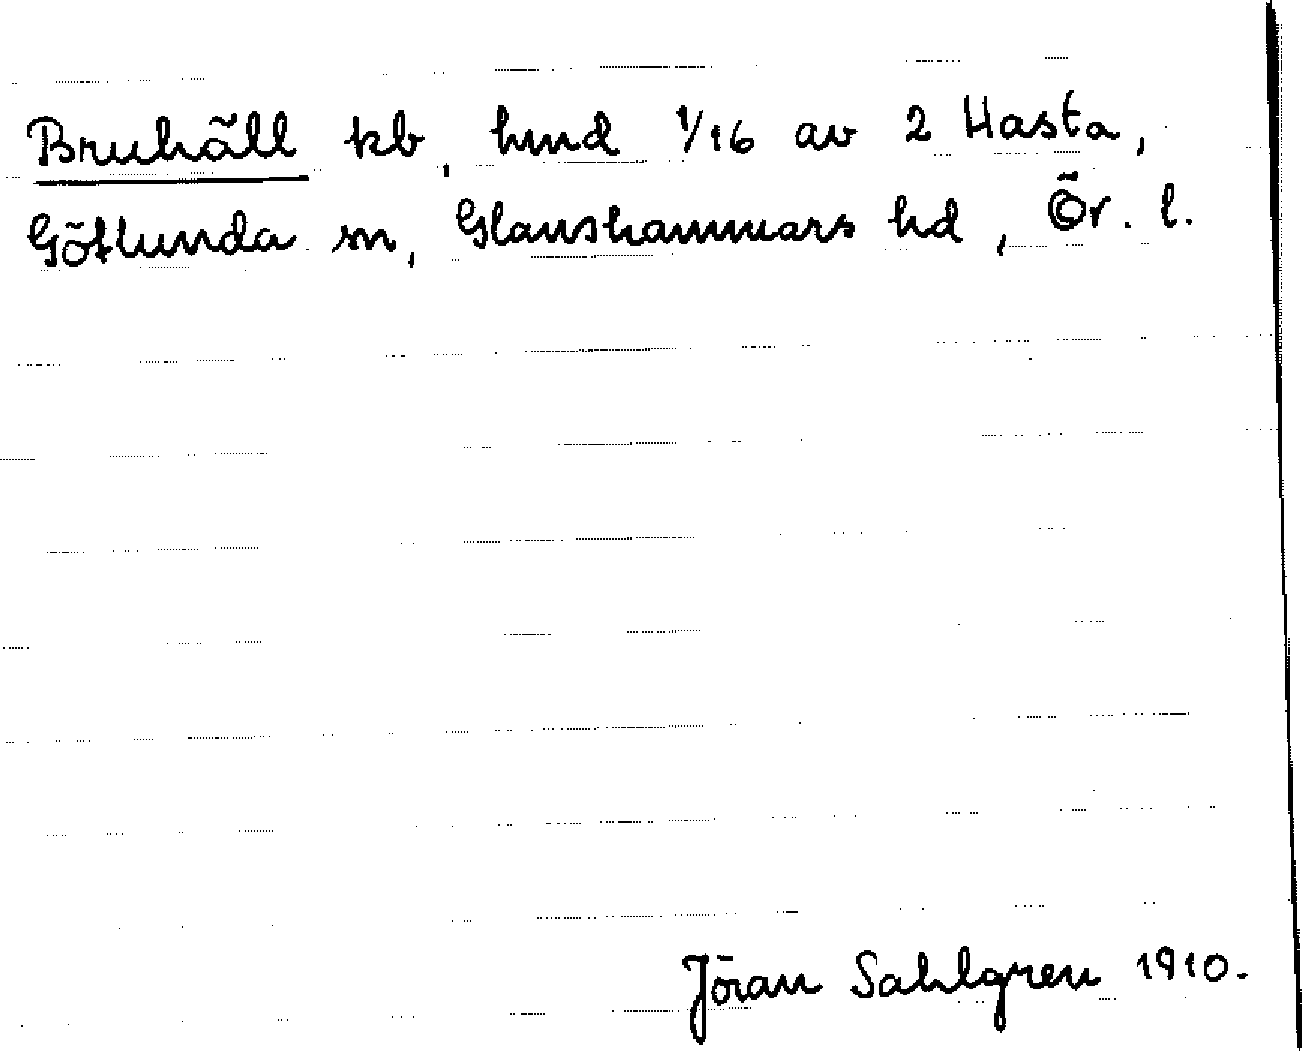 Bruhäll kb, hmd 1/16 av 2 Hasta,
Götlunda sn, Glanshammars hd, Ör. l.
Jöran Sahlgren 1910.